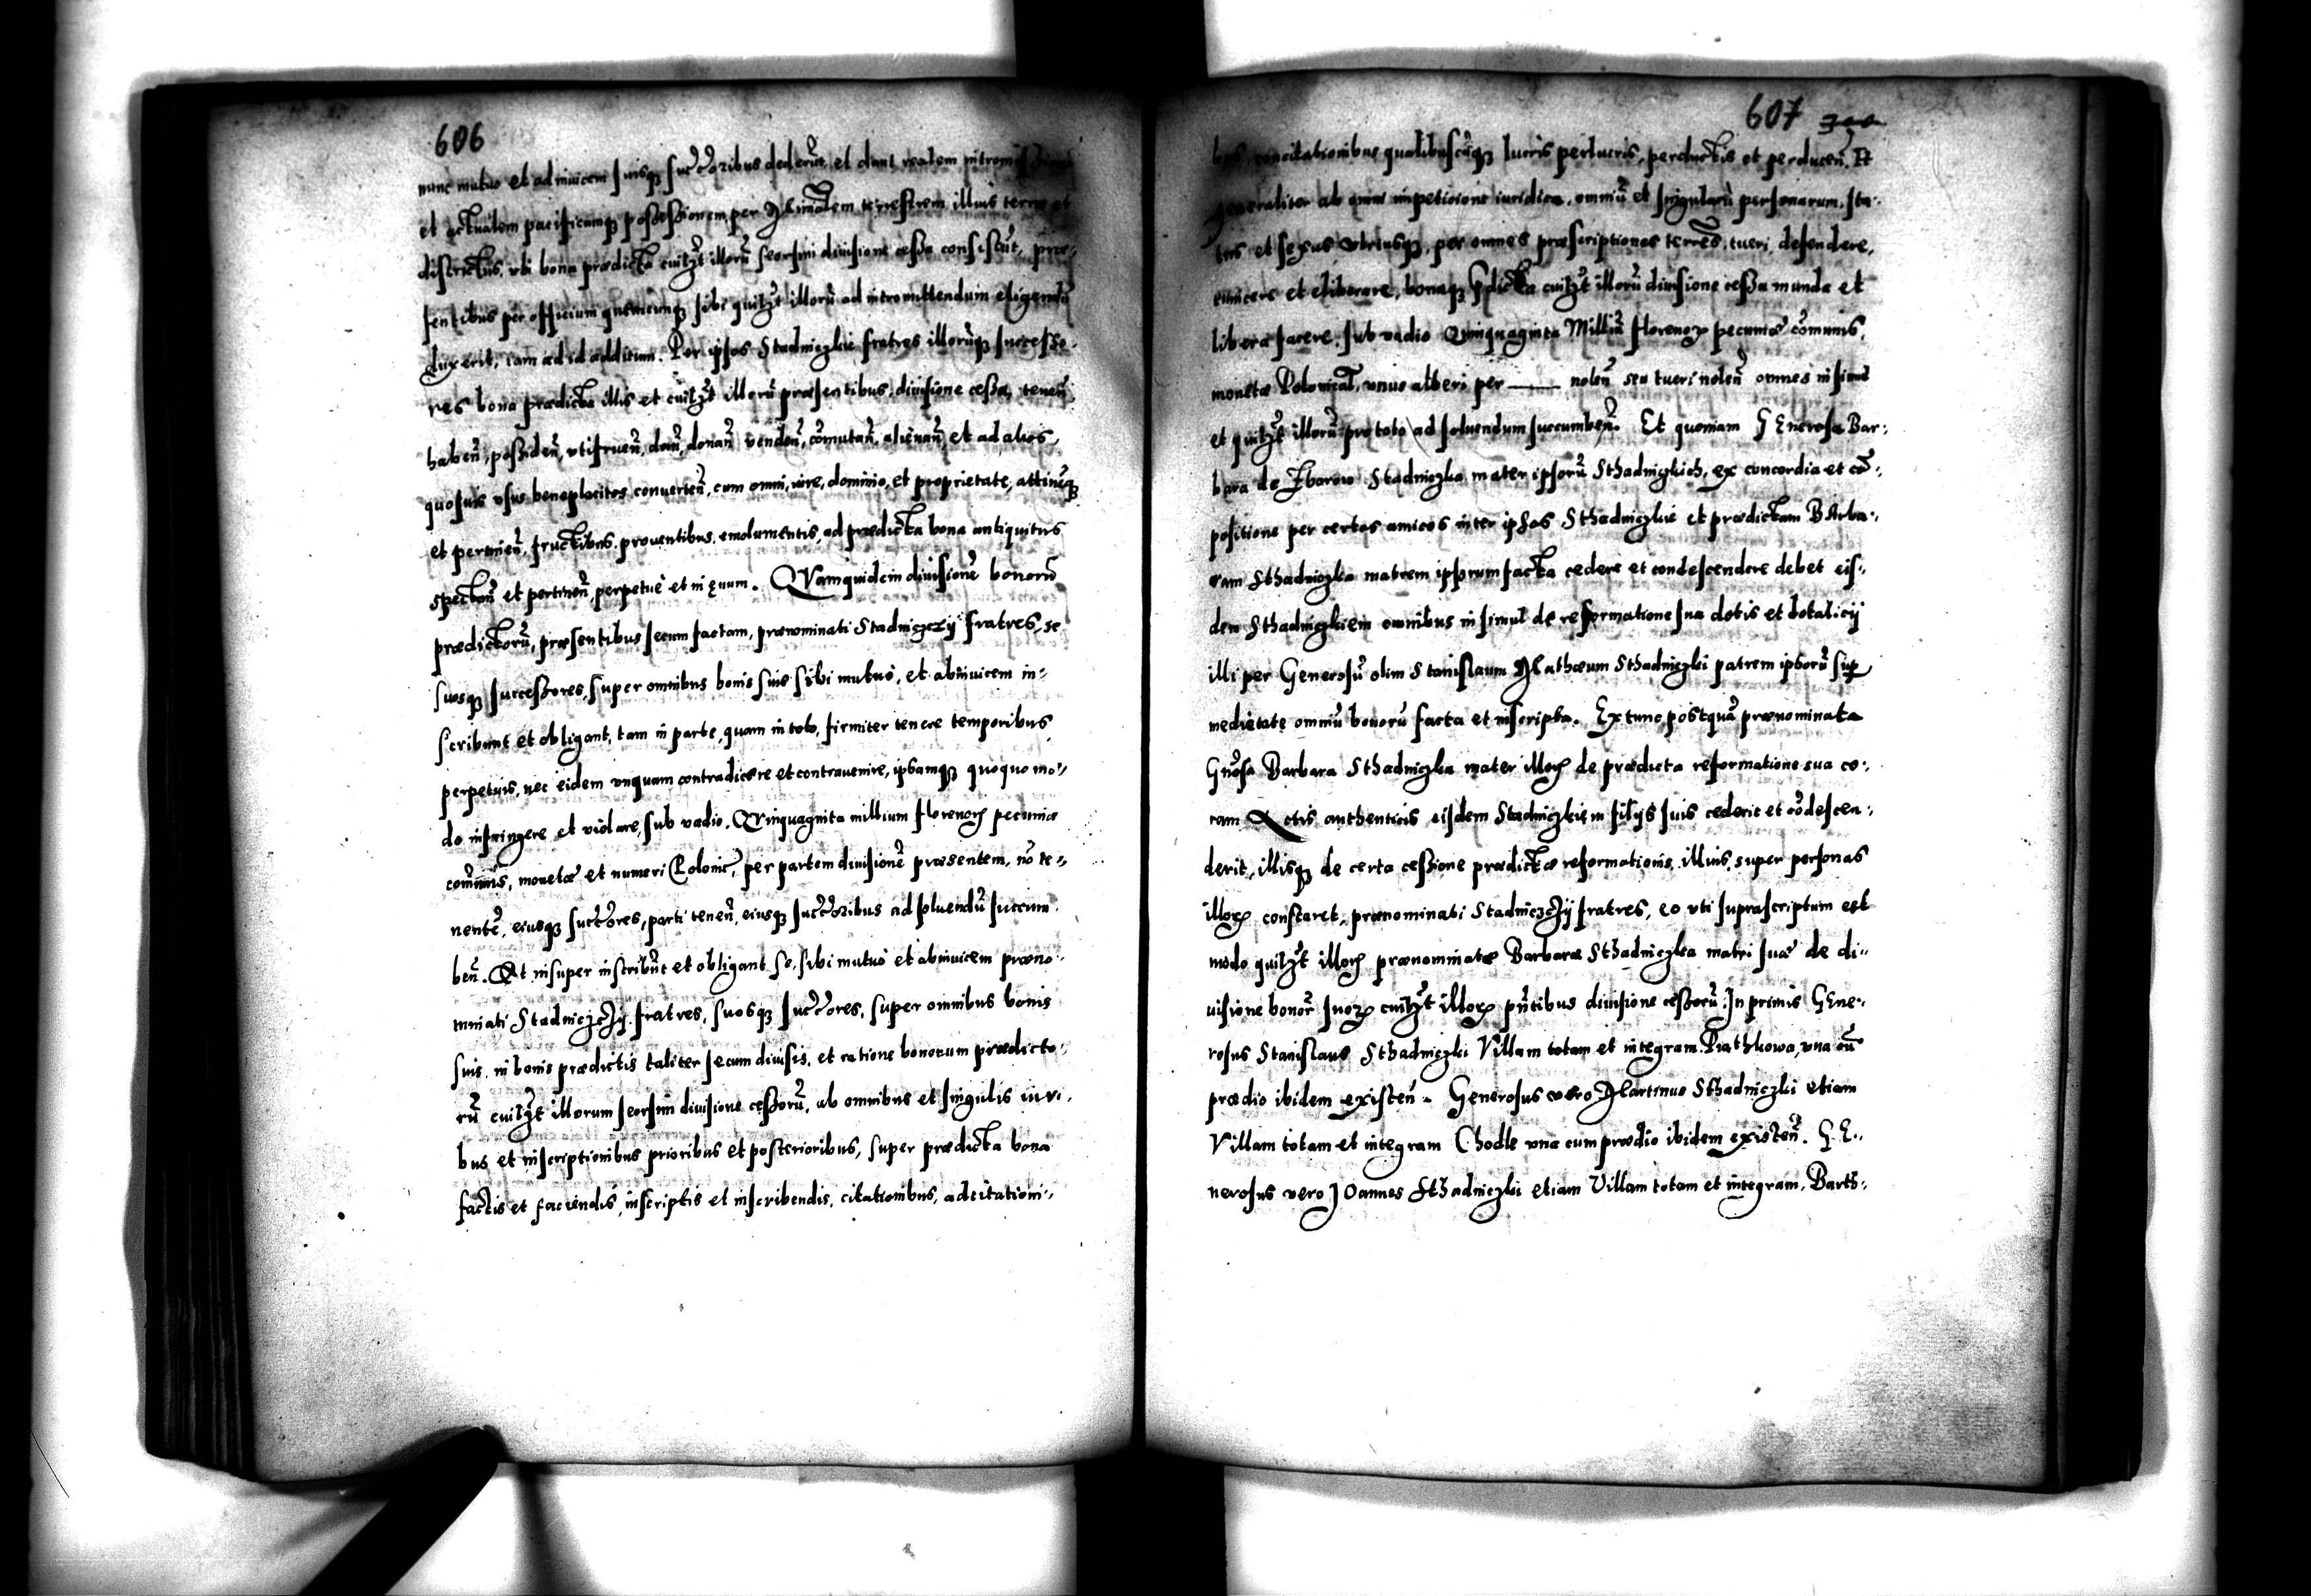 606
nunc mutuo et ad invicem suisqꝫ succ̃oribus dederũt, et dant realem intromissionem
et actualem pacificamqꝫ possessionem per Mĩalem terrestrem illius terræ et
districtus, ubi bona prædicta cuilzt̃ illorũ seorsim divisione cessa consistũt, præ-
sentibus per officium quemcunqꝫ sibi quilzt̃ illorũ ad intromittendum eligendũ
duxerit, iam ad id additum. Per ipsos Stadniczkie fratres illorũqꝫ successo-
res bona prædicta illis et cuilzt̃ illorũ præsentibus, divisione cessa, teneñ,
habeñ, possideñ, utifrueñ, dañ, donañ vendeñ, cõmutañ, alienañ et ad alios,
quosuis usus beneplacitos converteñ, cum omni, iure, dominio, et proprietate, attineñqꝫ
et pertineñ, fructibus, proventibus, emolumentis, ad prædicta bona antiquitus
spectañ et pertineñ, perpetuè et in ęuum. QVam quidem divisionẽ bonorũ
prædictorũ, præsentibus secum factam, prænominati Stadniczczy fratres, se
suosqꝫ successores, super omnibus bonis suis sibi mutuò, et abinvicem in-
scribunt et obligant, tam in parte, quam in toto, firmiter tenere temporibus
perpetuis, nec eidem unquam contradicere et contravenire, ipsamqꝫ quoquo mo-
do infringere et violare, sub vadio, QVinquaginta millium florenoꝝ pecuniæ
cõmunis, monetæ et numeri Polonic̃, per partem divisionẽ præsentem, nõ te-
nentẽ, eiusqꝫ succ̃ores, parti teneñ, eiusqꝫ succ̃oribus ad soluendũ succum-
beñ. Et insuper inscribũt et obligant se, sibi mutuò et abinvicem præno-
minati Stadniczczy fratres, suosqꝫ succ̃ores, super omnibus bonis
suis, in bonis prædictis taliter secum divisis, et ratione bonorum prædicto-
rũ cuilzt̃ illorum seorsim divisione cessorũ, ab omnibus et singulis iuri-
bus et inscriptionibus prioribus et posterioribus, super prædicta bona
factis et faciendis, inscriptis et inscribendis, citationibus, adcitationi-
607
bus, concitationibus qualibuscũqꝫ lucris perlucris, perductis et perduceñ. Et
generaliter ab omni impeticione iuridica, omniũ et singularũ personarum, sta-
tus et sexus utriusqꝫ, per omnes præscriptiones terrẽs, tueri, defendere,
evincere et eliberare, bonaqꝫ p̃dicta cuilzt̃ illorũ divisione cessa munda et
libera facere, sub vadio Quinquaginta Milliũ florenoꝝ pecuniæ cõmunis,
monetæ Polonical̃, unus alteri per —— noleñ seu tueri noleñ omnes insimul
et quilzt̃ illorũ pro toto ad soluendum succumbeñ. Et quoniam GEnerosa Bar-
bara de Zborow Stadniczka mater ipsorũ Sthadniczkich, ex concordia et cõ-
positione per certos amicos inter ipsos Sthadniczkie et prædictam BArba-
ram Sthadniczka matrem ipsorum facta cedere et condescendere debet eis-
dem Sthadniczkiem omnibus insimul de reformatione sua dotis et dotalicij
illi per Generosũ olim Stanislaum Mathæum Sthadniczki patrem ipsorũ sup̱
medietate omniũ bonorũ facta et inscripta. Ex tunc postquã prænominata
Gñosa Barbara Sthadniczka mater illoꝝ de prædicta reformatione sua co-
ram Actis authenticis eisdem Stadniczkiem filijs suis cederit et cõdescen-
derit, illisqꝫ de certa cessione prædictæ reformationis, illius, super personas
illoꝝ constaret, prænominati Stadniczczij fratres, eo uti suprascriptum est
modo quilzt̃ illoꝝ prænominatæ Barbaræ Sthadniczka matri suæ de di-
uisione bonoꝝ suoꝝ cuilzt̃ illoꝝ pñtibus divisione cessorũ. In primis GEne-
rosus Stanislaus Sthadniczki Villam totam et integram Piathkowa, una cũ
prædio ibidem existeñ. Generosus vero Martinus Sthadniczki etiam
Villam totam et integram Chodle una cum prædio ibidem existeñ. GE-
nerosus vero JOannes Sthadniczki etiam Villam totam et integram, Barth-